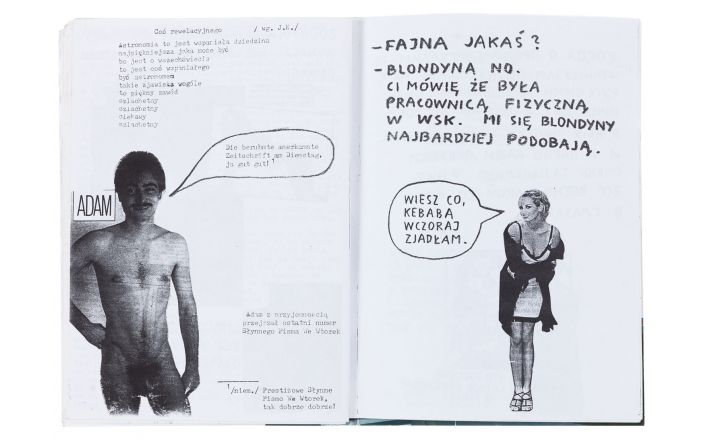 Coś rewelacyjnego / wg. J.R./
Astronomia to jest wspaniała dziedzina
najpiękniejsza jaka może być
bo jest o wszechświecie
to jest coś wspaniałego
być astronomem
takie zjawiska wogóle
to piękny zawód
szlachetny
szlachetny
ciekawy
szlachetny
Die berühmte anerkannte
Zeitschrift am Dienstag,
ja gut gut! 1
ADAM
Adam z przyjemnością
przejrzał ostatni numer
Słynnego Pisma We Wtorek
1/niem./ Prestiżowe Słynne
Pismo We Wtorek,
tak dobrze dobrze!
- FAJNA JAKAŚ?
- BLONDYNA NO.
CI MÓWIĘ ŻE BYŁA
PRACOWNICĄ FIZYCZNĄ
W WSK. MI SIĘ BLONDYNY
NAJBARDZIEJ PODOBAJĄ.
WIESZ CO,
KEBABA
WCZORAJ
ZJADŁAM.